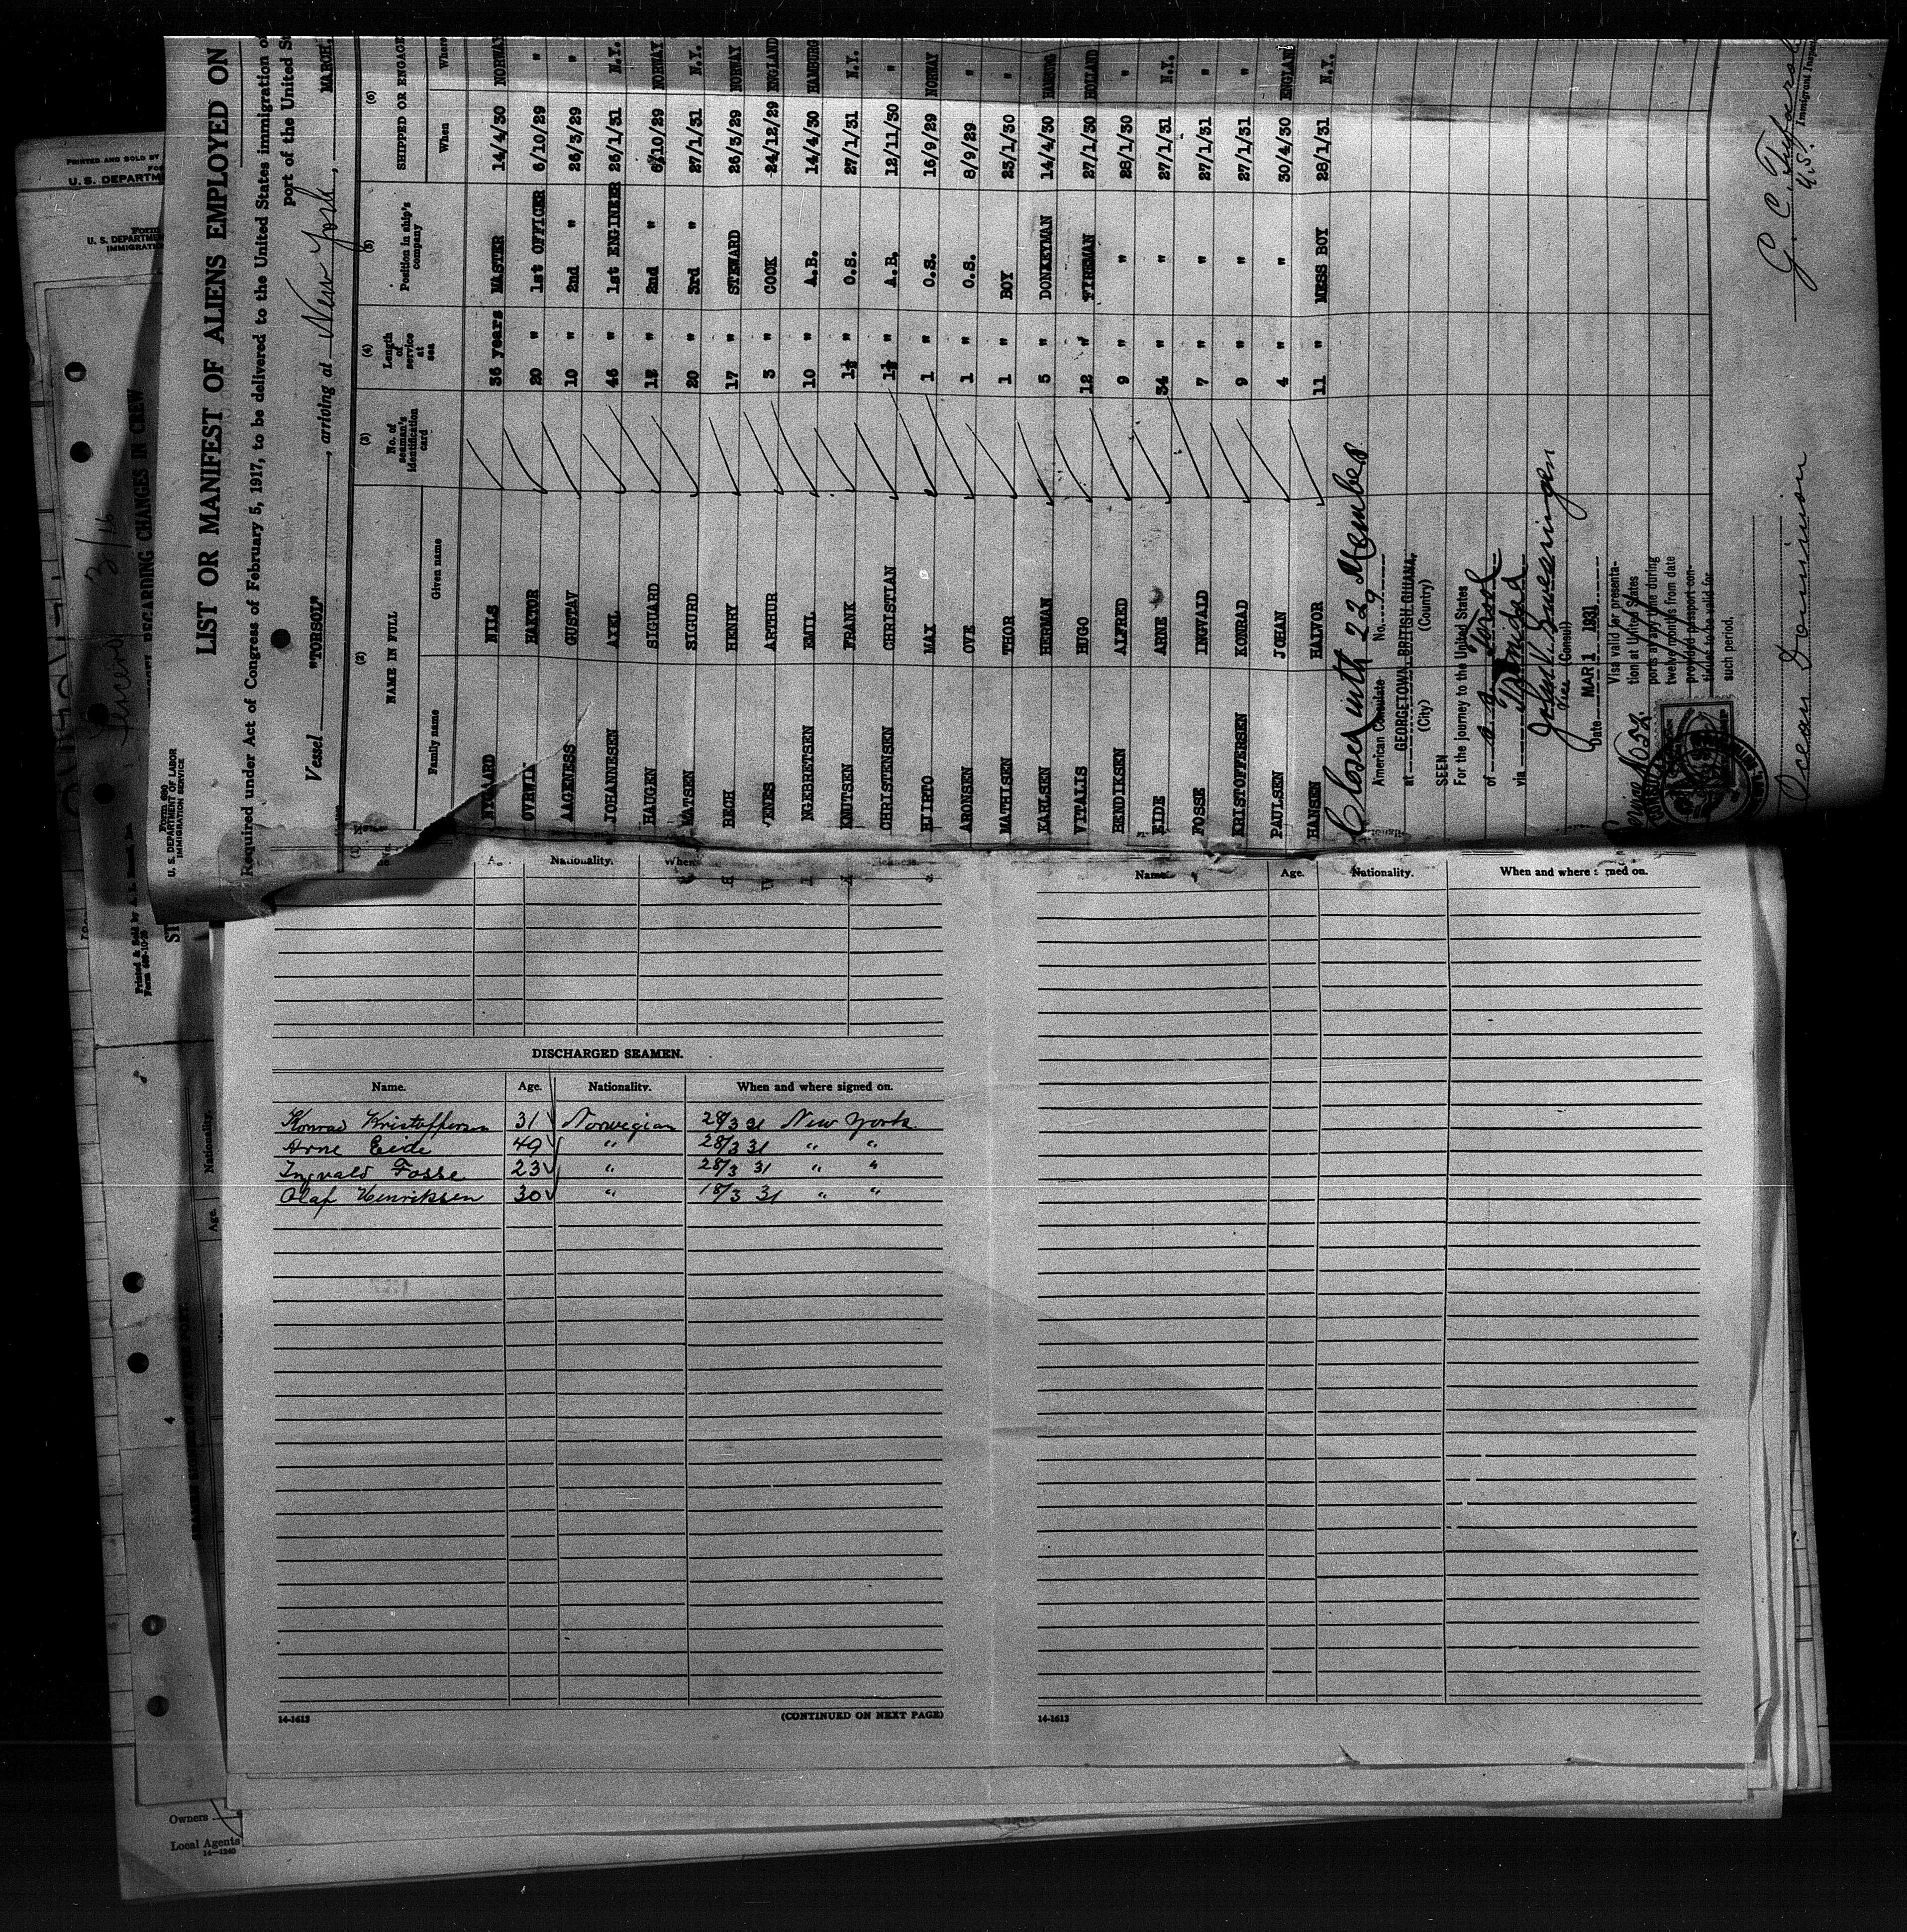 LIST OR MANIFEST OF ALIENS EMPLOYED ON
Form 680
U. S. DEPARTMENT OF LABOR
IMMIGRATION SERVICE
Required under Act of Congress of February 5, 1917, to be delivered to the United States immigration
port of the United
Vessel "TORSOL", arriving at New York, MARCH.
(1) (2) (3) (4) (5) (6)
NAME IN FULL
Family name Given name
No. of seaman's identification card
Length of service at sea
Position in ship's company
SHIPPED OR ENGAGE
When Where
NYGAARD NILS 36 years MASTER 14/4/30 NORWAY
HAKTOR 20 " 1st OFFICER 6/10/29 "
AAGENESS GUSTAV 10 " 2nd " 26/3/29 "
JOHANNESEN AXEL 46 " 1st ENGINEER 26/1/31 N.Y.
HAUGEN SIGUARD " 2nd " 10/29 NORWAY
MATSEN SIGURD 20 " 3rd " 27/1/31 N.Y.
BECH HENRY 17 " STEWARD 26/3/29 NORWAY
ARTHUR 3 " COOK 24/12/29 ENGLAND
NGEBRETSEN EMIL 10 " A.B. 14/4/30 HAMBURG
KNUTSEN FRANK 1½ " O.S. 27/1/31 N.Y.
CHRISTENSEN CHRISTIAN 1½ " A.B. 12/11/30 "
HJIRTO MAY 1 " O.S. 16/9/29 NORWAY
ARONSEN OVE 1 " O.S. 8/9/29 "
MATHISEN THOR 1 " BOY 23/1/30 "
KARLSEN HERMAN 5 " DONKEYMAN 14/4/30
VITALIS HUGO 12 " FIREMAN 27/1/30 HOLLAND
HENDIKSEN ALFRED 9 " " 28/1/30 "
EIDE ARNE 34 " " 27/1/31 N.Y.
FOSSE INGVALD 7 " " 27/1/31 "
KRISTOFFERSEN KONRAD 9 " " 27/1/31 "
PAULSEN JOHAN 4 " " 30/4/30 ENGLAND
HANSEN HALVOR 11 " MESS BOY 28/1/31 N.Y.
Closed with 22 Member
American Consulate No. 9
at GEORGETOWN, BRITISH GUIANA.
(City) (Country)
SEEN
For the journey to the United States
of s.s. Torsol
via
Vice (Consul)
Date MAR 1 1931
Visa valid for presenta-
tion at United States
ports at any time during
twelve months from date
provided passport con-
tinues to be valid for
such period.
Service No 52
Ocean Dominion
Immigrant
U.S.
PRINTED AND SOLD BY
U. S. DEPARTM
Form
U. S. DEPARTMEN
IMMIGRATI
REGARDING CHANGES IN CREW
3/16
Nationality. When
Name. Age. Nationality. When and where signed on.
DISCHARGED SEAMEN.
Name. Age. Nationality. When and where signed on.
Konrad Kristoffersen 31 Norwegian 28/3 31 New York
Arne Eide 49 " 28/3 31 " "
Ingvald Fosse 23 " 28/3 31 " "
Olaf Henriksen 30 " 18/3 31 " "
14-1613 (CONTINUED ON NEXT PAGE)
14-1613
Nationality.
Age.
4
Owners
Local Agents
14-1240